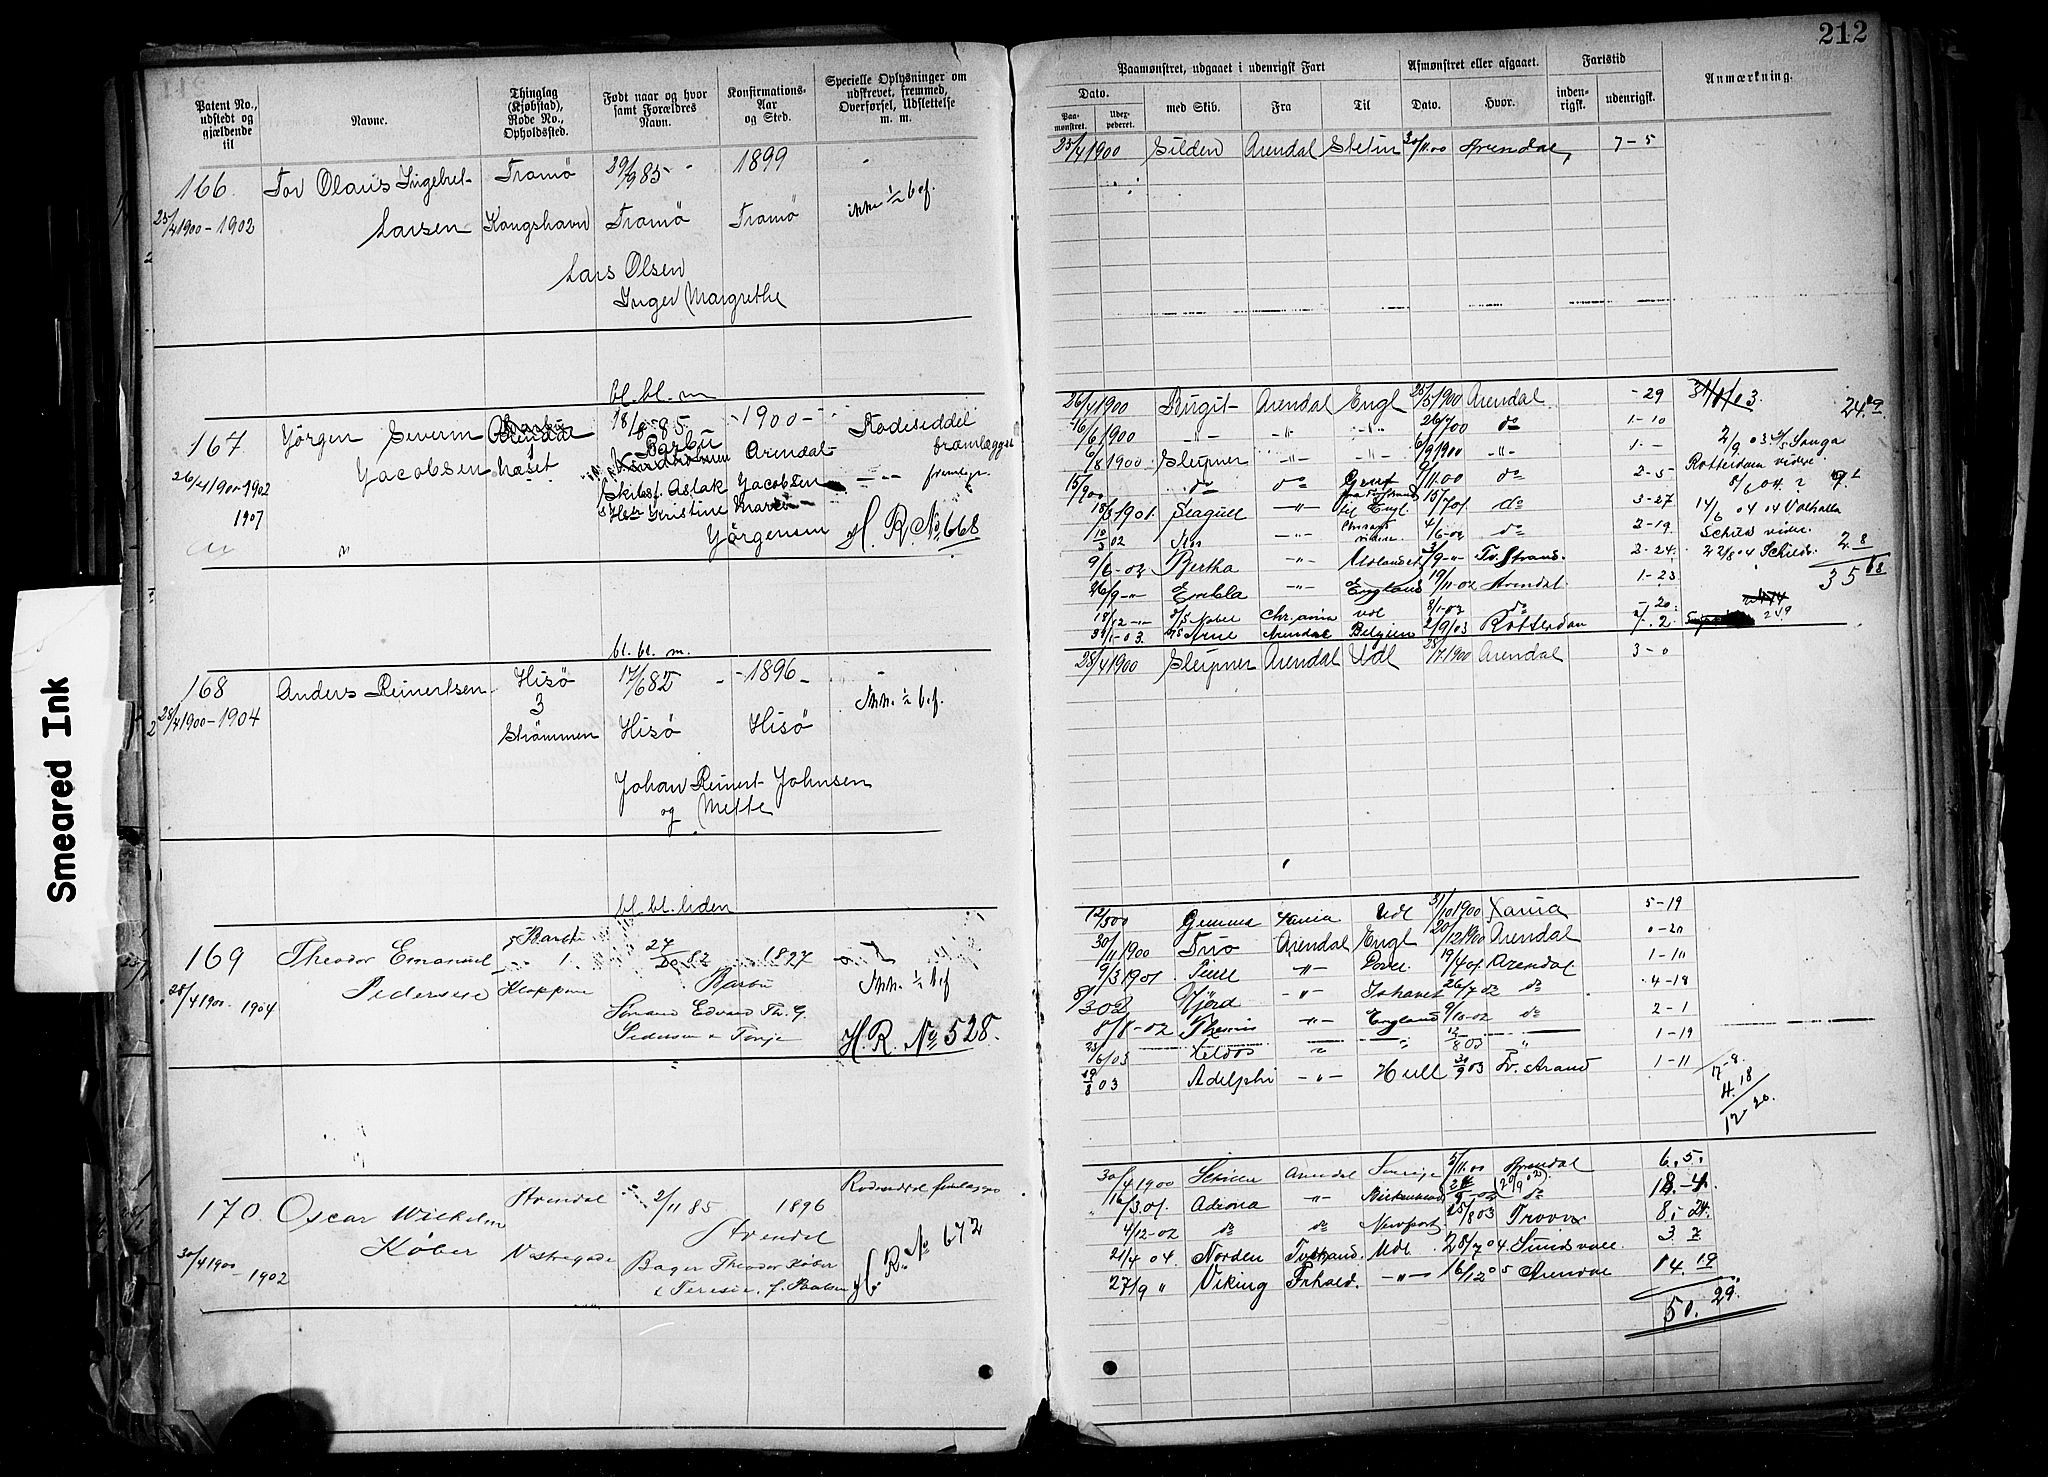 212
Patent No., udstedt og gjældende til
Navne.
Thinglag (Kjøbstad), Rode No., Opholdssted.
Født naar og hvor samt Forældres Navn.
Konfirmations-Aar og Sted.
Specielle Oplysninger om udskrevet, fremmed, Overførsel, Udslettelse m. m.
Paamønstret, udgaaet i udenrigsk Fart
Afmønstret eller afgaaet.
Fartstid
Anmærkning.
Dato.
Paa-mønstret.
Udex-pederet.
med Skib.
Fra
Til
Dato.
Hvor.
inden-rigsk.
udenrigsk.
166. Tor Olaus Ingebret- Tromö 29/9 85 - 1899 -
25/4 1900 - 1902 Larsen Kongshavn Tromö Tromö ikke 1/2 bef.
Lars Olsen
Inger Margrethe
25/4 1900 Gilden Arendal Stetin 30/11 00 Arendal, 7-5
bl. bl. m
167 Jörgen Severin 18/8-85 - 1900 - Rodeseddel
Barbu fremlægges
26/4 1900-1902 Jacobsen næset Arendal
1907
Skibsf. Aslak Jacobsen
Kristine
Jörgensen H. R. No 668
26/4 1900 Birgit Arendal Engl 25/5 1900 Arendal - 29
16/6 1900 -"- -"- -"- 26/7 00 do 1-10
6/8 1900 Sleipner -"- -"- 6/9 1900 -"- 1. -
15/9 00 do do Gent 9/11 00 do 2-5
18/3 1901 Seagull -"- til Engl. 15/7 01. do 3-27
10/3 02 -"- 4/6-02 do 2-19
9/6-02 Bertha -"- Tv.Strand. 2-24.
26/9-"- Embla -"- England 19/11-02 Arendal. 1-23
18/12 -"- Nabel Chr.ania Udl 8/1-03 do - 20
31/1-03. Arne Arendal Belgien 2/9/03 Rotterdam 7. 2
31/1/03
24.9
2/9 03 Langa
Rotterdam videre
8/6 04
14/6 04 04 Valhalla
Schilds videre
22/8 04 Schilds
2 8
35
249
bl. bl. m.
168 Anders Reinertsen Hisö 17/6 82 - - 1896 - -
3
28/4 1900 - 1904 Strömmen Hisö Hisö Ikke 1/2 bef.
Johan Reinert Johnsen
og Mette
28/4 1900 Sleipner Arendal Udl 28/7 1900 Arendal 3-0
bl. bl. liden
169 Theodor Emanuel Barbu 27/ 82 1897
1.
28/4 1900 - 1904 Pedersen Kloppene Barbu Ikke 1/2 bef
Edvard Th. G.
Pedersen & Tonje H. R. No 528.
12/5 00 Gemma Xania Udl 31/10 1900 Xania 5-19
30/11 1900 Arendal Engl 20/12 1900 Arendal 0-20
9/3 1901 -"- Dover 19/4 01. Arendal 1-11
8/3 02 Fjörd -"- 26/7 02 do 4-18
8/8-02 Themis " England 9/10-02 do 2-1
25/6/03 " " 12/8 03 " 1-19
19/8 03 Adelphi -"- Hull 30/9 03 Tv. strand 1-11
17-8.
4. 18
17-20.
170. Oscar Wilhelm Arendal 2/11 85 1896 Rodeseddel fremlagges
30/4 1900 - 1902 Köber Vestregade Arendal
Bager Theodor Köber
& Teresie, f. Paulsen H. R. No 672
30/4 1900 Arendal Sverige 5/11 00 Arendal 6. 5.
16/3 01. Adiona " Birkenhead (20/9 02) do 18-4
4/12-02 do do Newport 25/8 03 Tromö 8. 24.
21/4 04. Norden Tv.strand. Udl. 28/7 04. Sundsvall. 3 7
27/9 " Viking Frhald. -"- 16/12 05 Arendal 14. 19
50. 29.
Smeared Ink